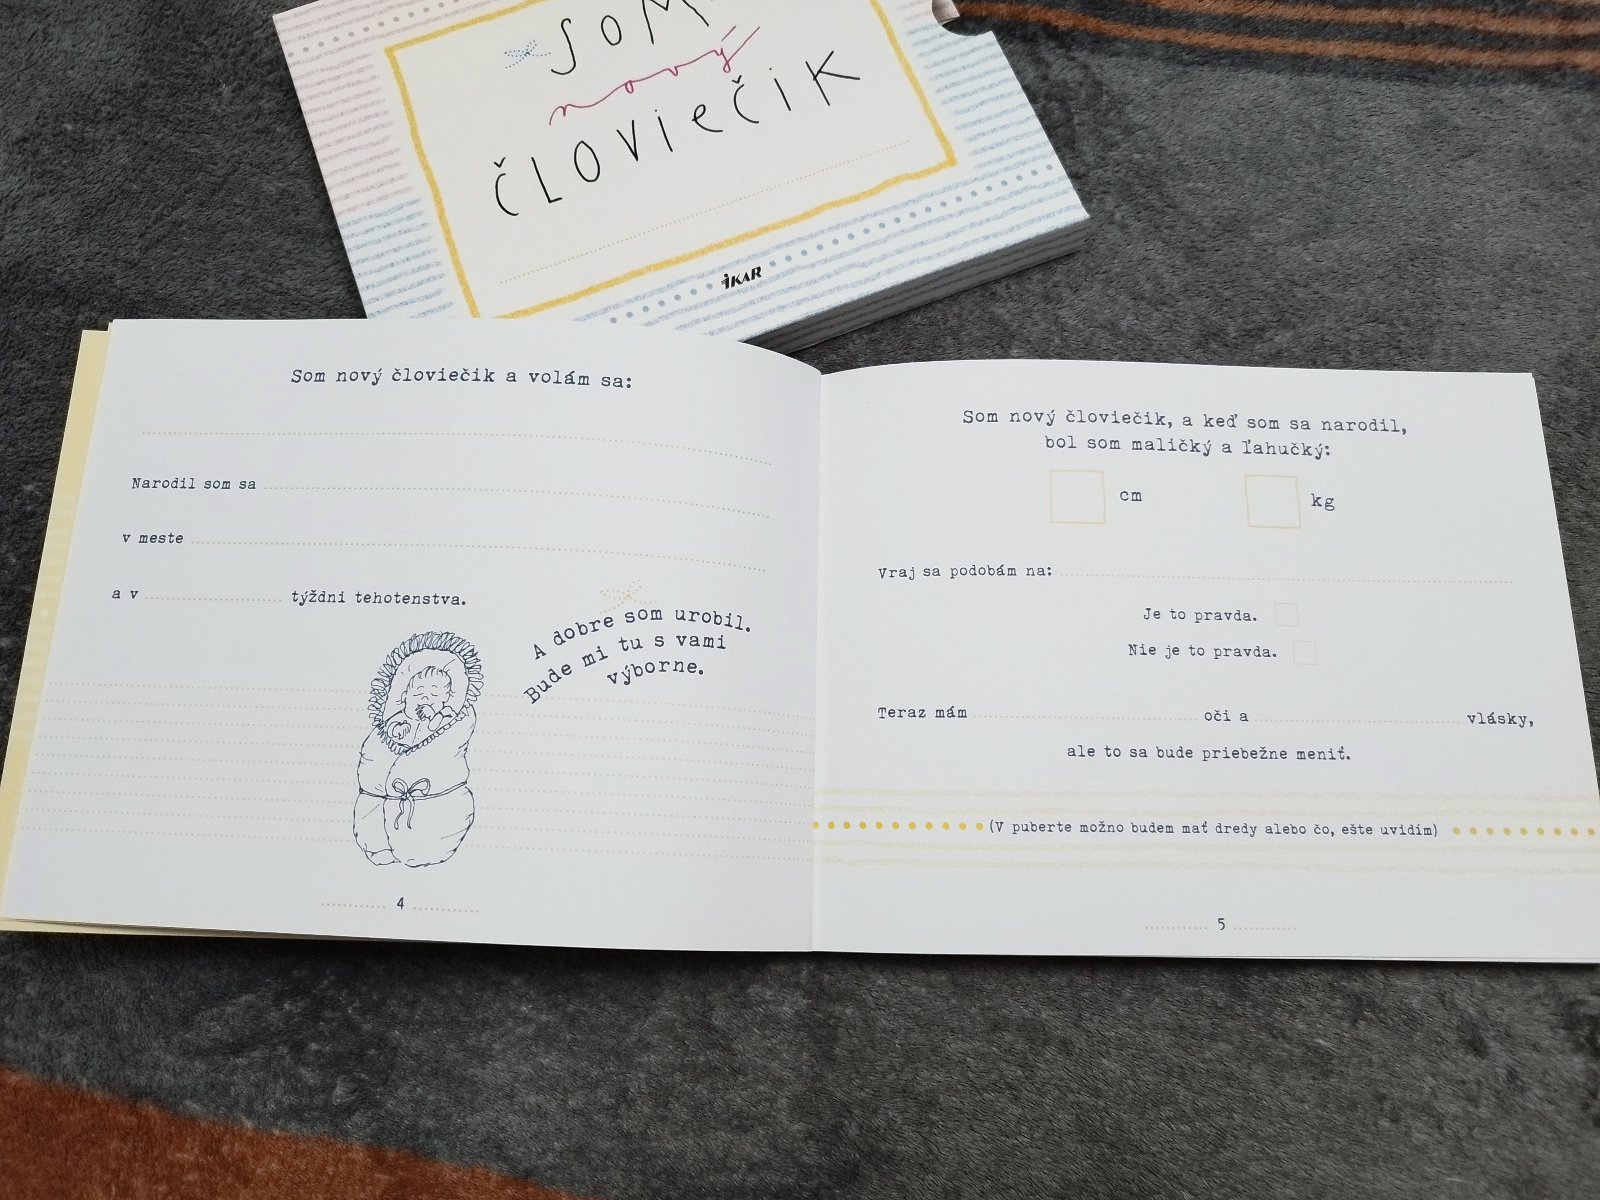 SOM
nový
ČLOVIEČIK
IKAR
Som nový človiečik a volám sa:
Narodil som sa
v meste
a v týždni tehotenstva.
A dobre som urobil.
Bude mi tu s vami
výborne.
4
Som nový človiečik, a keď som sa narodil,
bol som maličký a ľahučký:
cm kg
Vraj sa podobám na:
Je to pravda.
Nie je to pravda.
Teraz mám oči a vlásky,
ale to sa bude priebežne meniť.
(V puberte možno budem mať dredy alebo čo, ešte uvidím)
5